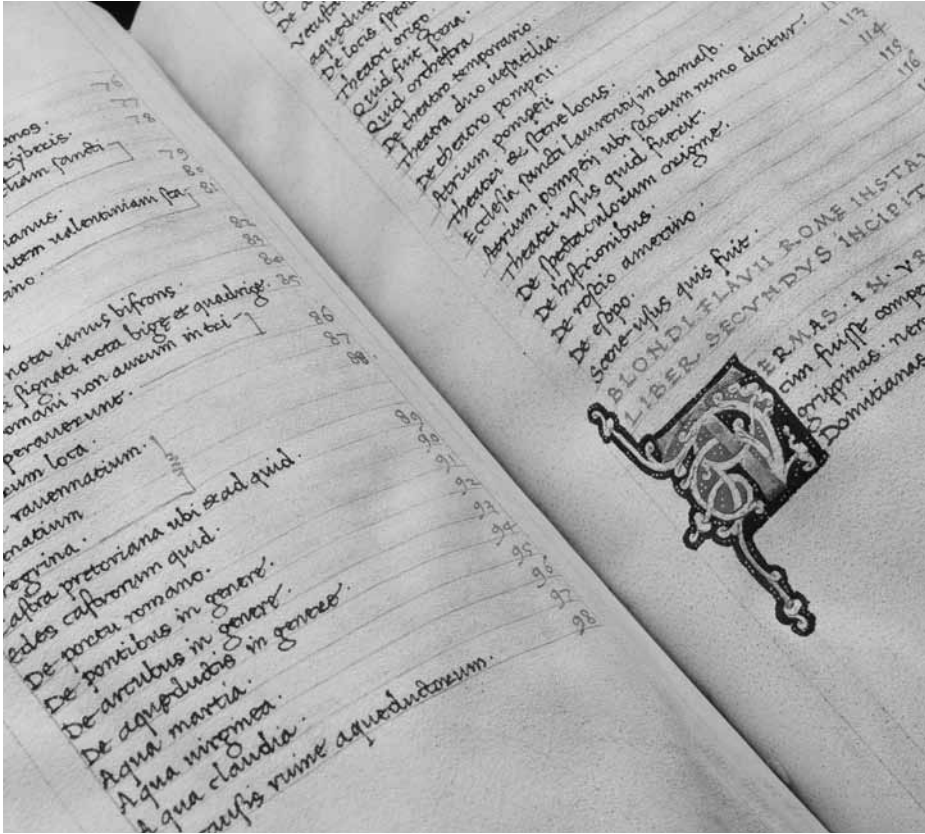 mos. 76
tyberis. 77
sancti 78
ianus. 79
ualentiniani 80
81
82
83
nota ianus bifrons. 84
signati nota bige et quadrige. 85
non aurum in tri 86
perauerunt.
loca. 87
rauennatium. 88
natium
regrina. 89
Castra pretoriana ubi & ad quid. 90
Edes castrorum quid. 91
De portu romano. 92
De pontibus in genere. 93
De arcubus in genere. 94
De aqueductis in genere. 95
Aqua martia. 96
Aqua uirginea. 97
Aqua claudia. 98
ruine aqueductorum.
De
uetusta
aqueduct
De locis
Theatri origo.
Quid fuit scena.
Quid orchestra
De theatro temporario.
Theatra duo uersatilia.
De theatro pompeii.
Atrium pompeii
Theatri & scene locus.
Ecclesia sancti laurentij in damaso.
Atrium pompeij ubi florum nunc dicitur. 113
Theatri usus quid fuerit. 114
De spectaculorum origine. 115
De histrionibus. 116
De roscio amerino.
De esopo.
Scene usus quis fuit.
BLONDI FLAVII ROME INSTAV
LIBER SECVNDVS INCIPIT
TERMAS IN VR
fuisse compe
agrippinas nero
Domitianas